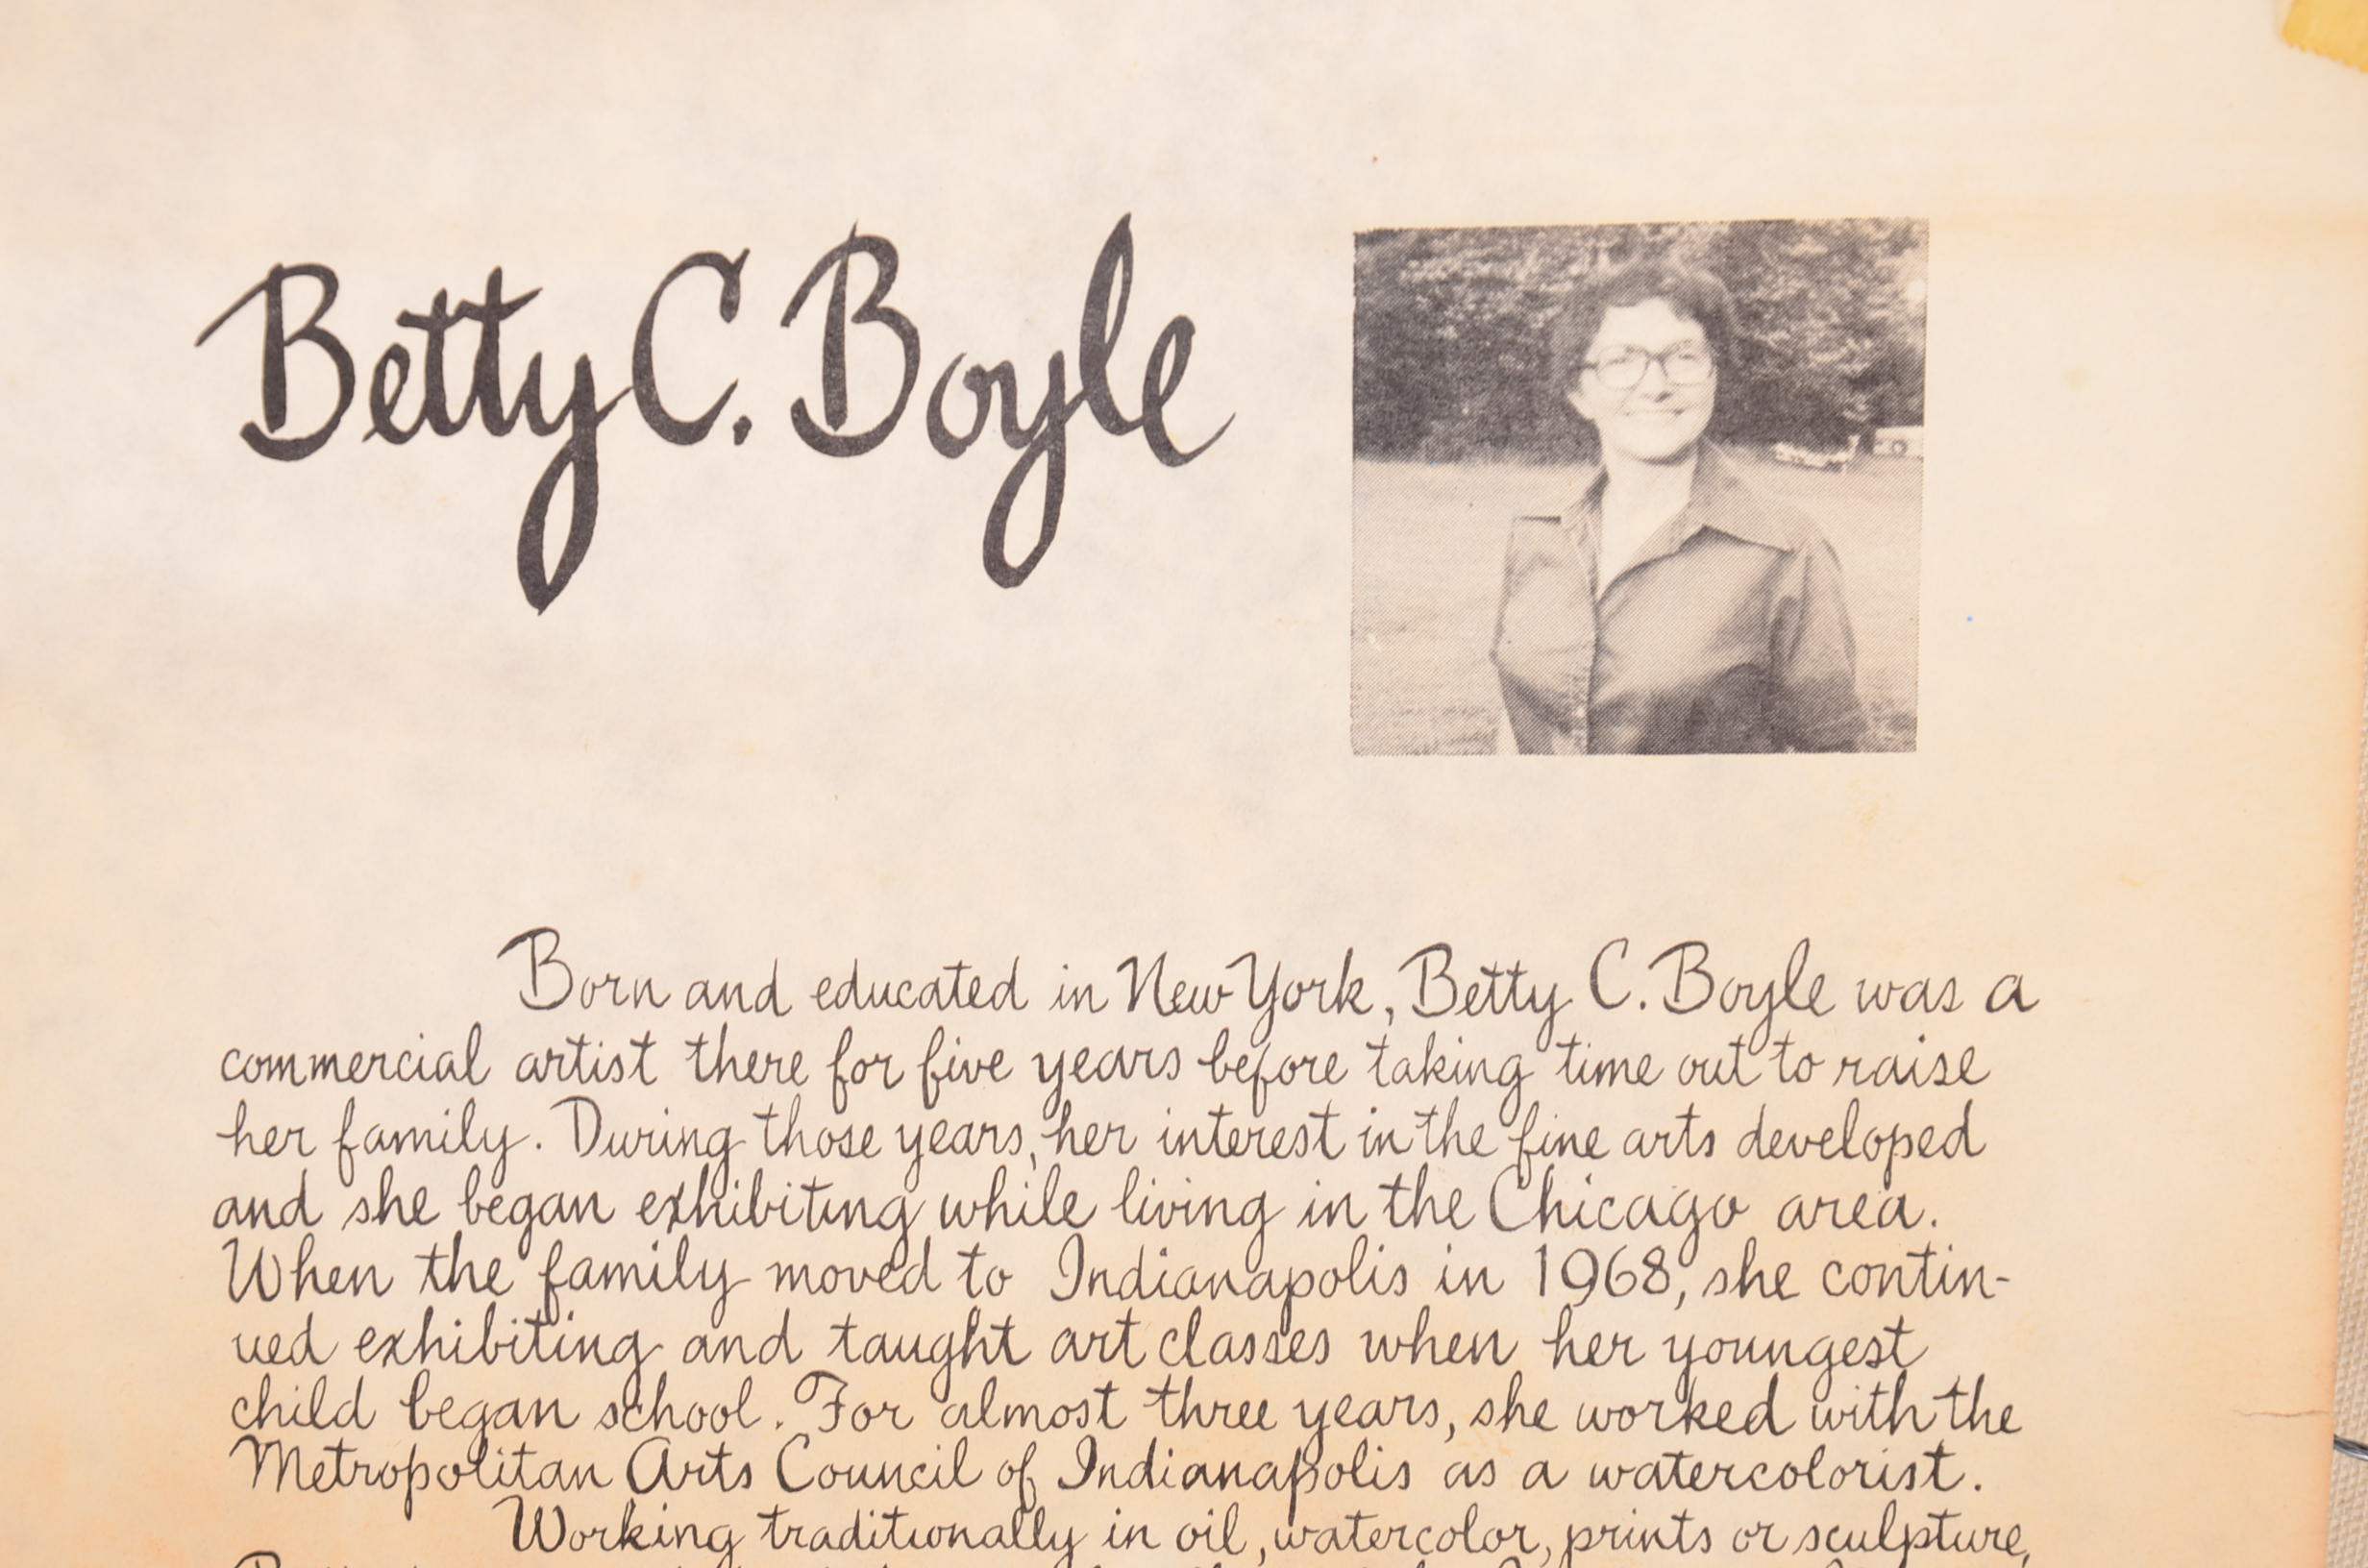 Betty C. Boyle
Born and educated in New York, Betty C. Boyle was a
commercial artist there for five years before taking time out to raise
her family. During those years, her interest in the fine arts developed
and she began exhibiting while living in the Chicago area.
When the family moved to Indianapolis in 1968, she contin-
ued exhibiting and taught art classes when her youngest
child began school. For almost three years, she worked with the
Metropolitan Arts Council of Indianapolis as a watercolorist.
Working traditionally in oil, watercolor, prints or sculpture,